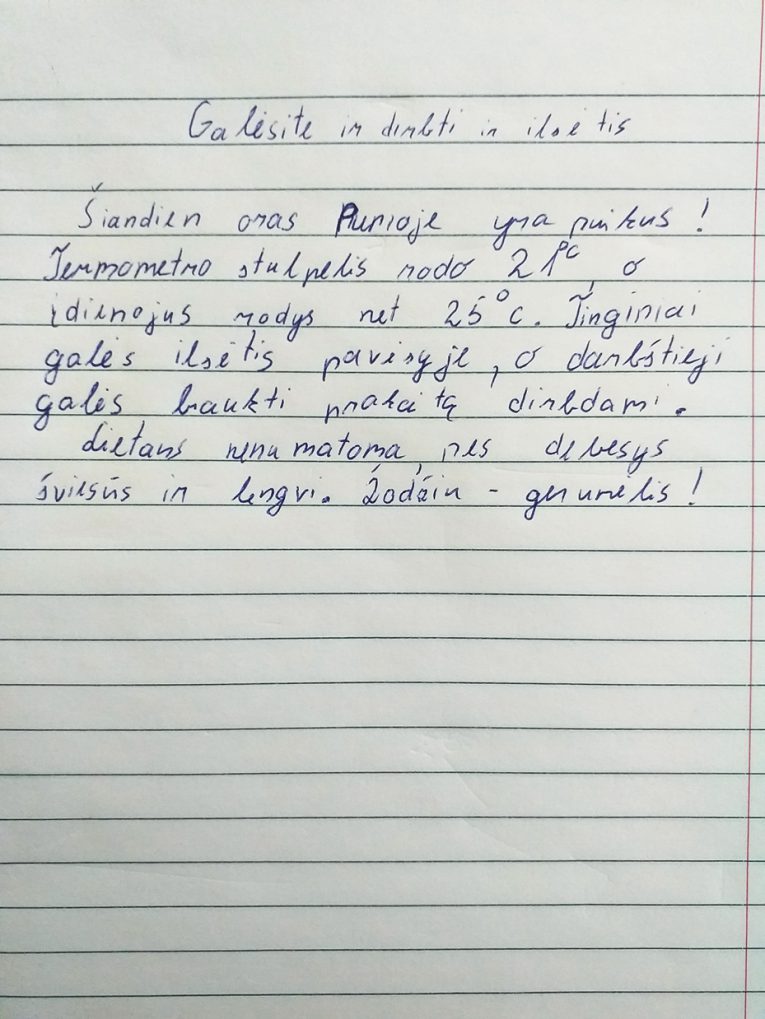 Galėsite ir dirbti ir ilsėtis
Šiandien oras Punioje yra puikus!
Termometro stulpelis rodo 21°C, o
įdienojus rodys net 25°C. Tinginiai
galės ilsėtis pavėsyje, o darbštieji
galės braukti prakaitą dirbdami.
Lietaus nenumatoma, nes debesys
šviesūs ir lengvi. Žodžiu - gerumėlis!